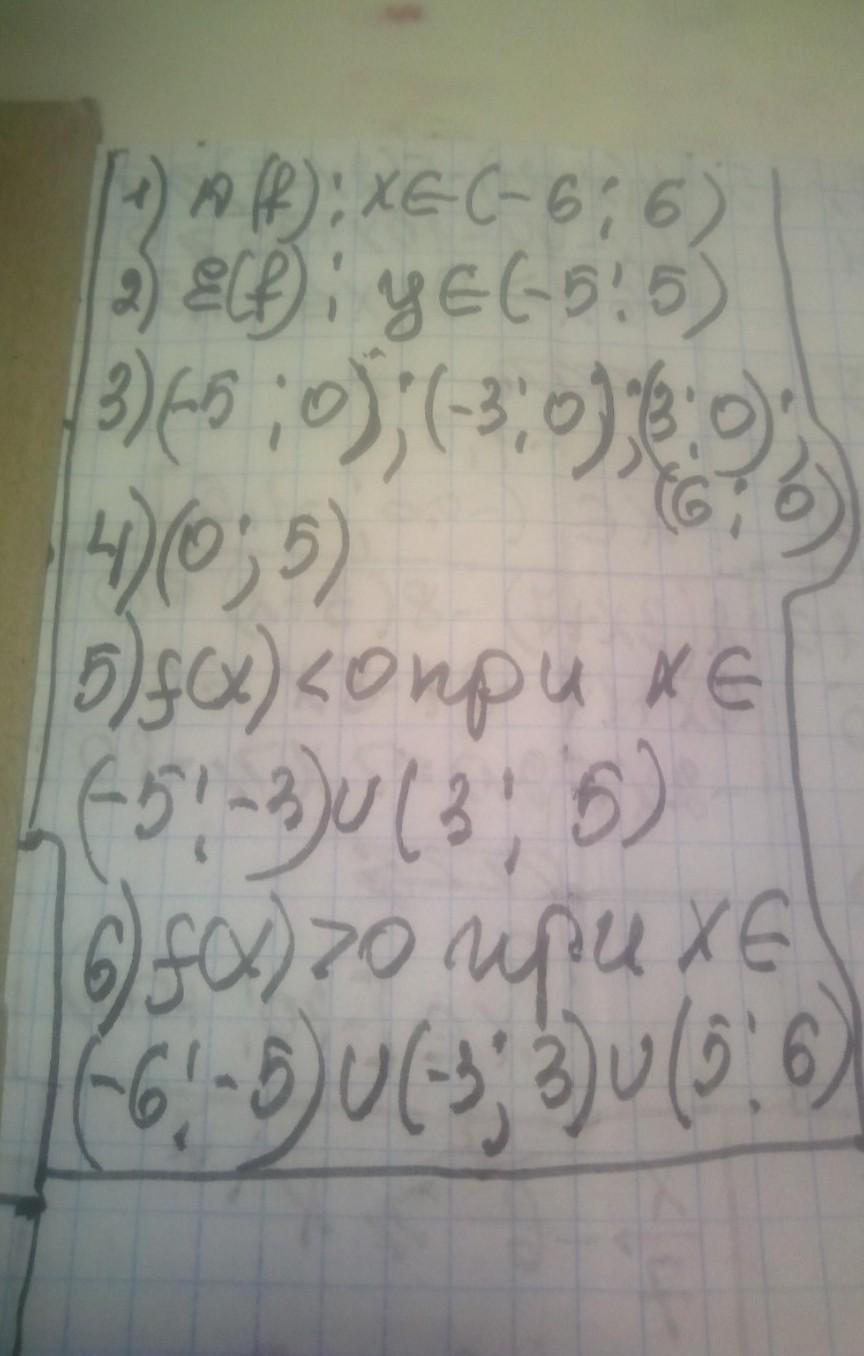 1) D(f): x∈(-6; 6)
2) E(f): y∈(-5; 5)
3)(-5; 0); (-3; 0); (3; 0);
(6; 0)
4)(0; 5)
5) f(x)<0 при x∈
(-5; -3)∪(3; 5)
6) f(x)>0 при x∈
(-6; -5)∪(-3; 3)∪(5; 6)